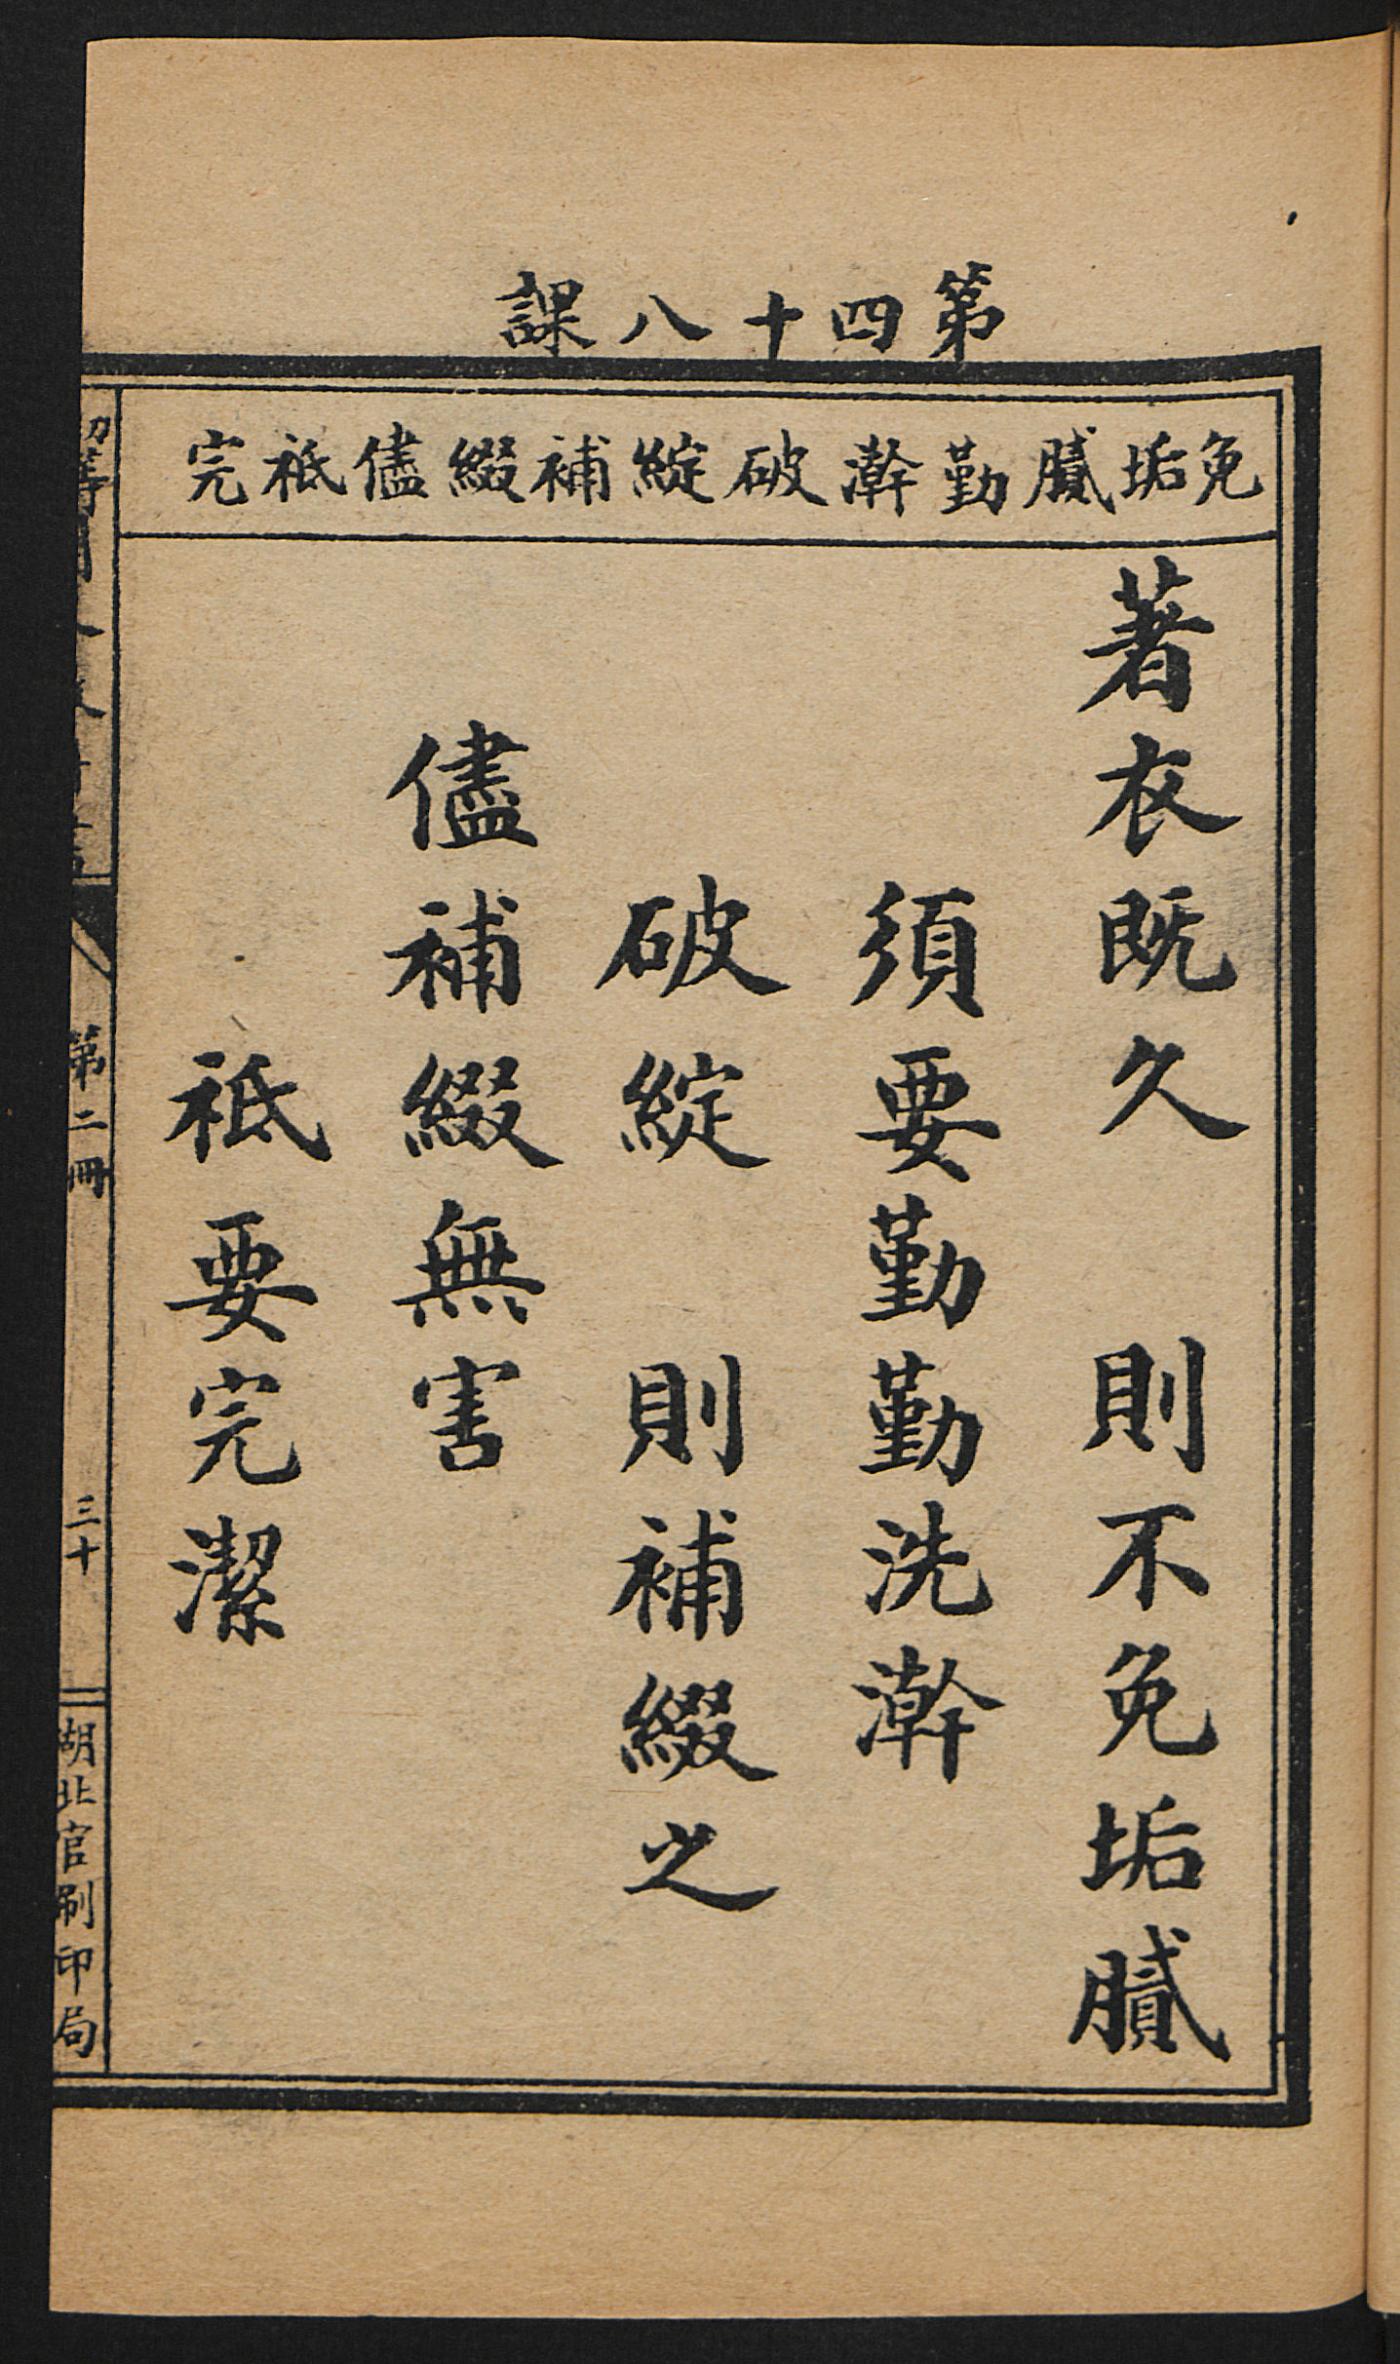 第四十八課
免垢膩勤澣破綻補綴儘祗完
著衣既久　則不免垢膩
須要勤勤洗澣
破綻　則補綴之
儘補綴無害
祗要完潔
第二冊
三十
湖北官刷印局